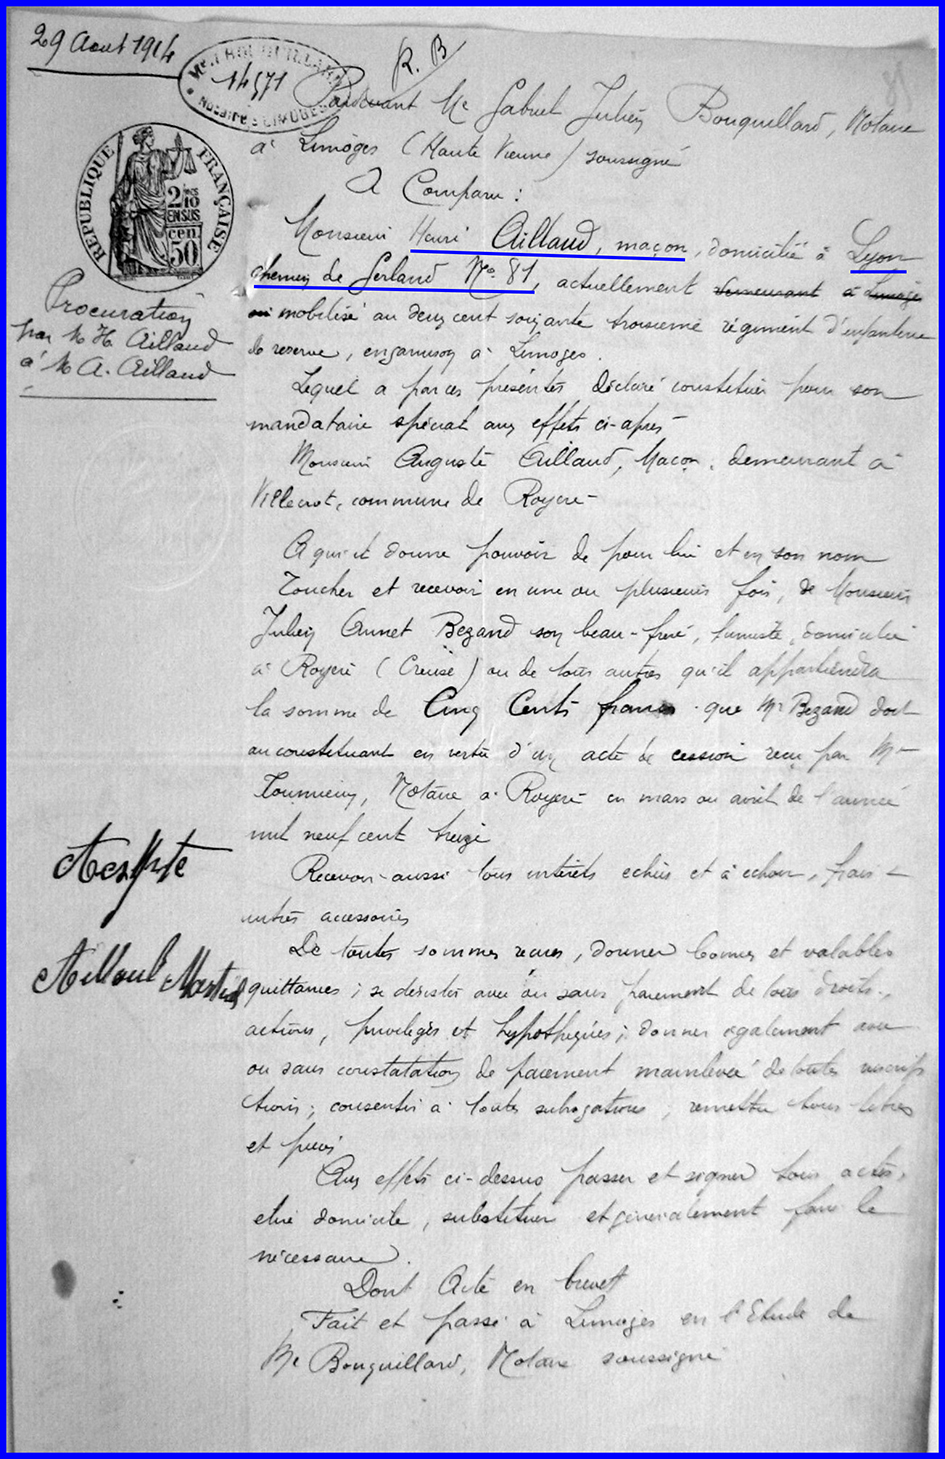 29 Aout 1914
14571
R. B
RÉPUBLIQUE FRANÇAISE
2/10 EN SUS
50 cen
Procuration
par M H. Aillaud
à M A. Aillaud
Pardevant Me Gabriel Julien Bouquillard, Notaire
à Limoges (Haute Vienne) soussigné
A Comparu :
Monsieur Henri Aillaud, maçon, domicilié à Lyon
chemin de Gerland No 81, actuellement demeurant à Limoges
mobilisé au deux cent soixante troisième régiment d'infanterie
de reserve, en garnison à Limoges.
Lequel a par ces présentes déclaré constituer pour son
mandataire spécial aux effets ci-après
Monsieur Auguste Aillaud, Maçon, demeurant à
Villecrot, commune de Royère
A qui il donne pouvoir de pour lui et en son nom
Toucher et recevoir en une ou plusieurs fois, de Monsieur
Julien Annet Bezaud son beau-frère, fumiste, domicilié
à Royère (Creuse) ou de tous autres qu'il appartiendra
la somme de Cinq Cents francs que Mr Bezaud doit
au constituant en vertu d'un acte de cession reçu par Me
Notaire à Royère en mars ou avril de l'année
mil neuf cent treize
Recevoir aussi tous intérêts echus et à echoir, frais et
autres accessoires
De toutes sommes reçues, donner bonnes et valables
quittances ; se désister avec ou sans paiement de tous droits,
actions, privilèges et hypothèques ; donner également avec
ou sans constatation de paiement mainlevée de toutes inscrip
tions ; consentir à toutes subrogations, remettre tous titres
et pièces
Accepte
Aillaud Martial
Aux effets ci-dessus passer et signer tous actes,
elire domicile, substituer et généralement faire le
nécessaire.
Dont Acte en brevet
Fait et passé à Limoges en l'Etude de
Me Bouquillard, Notaire soussigné